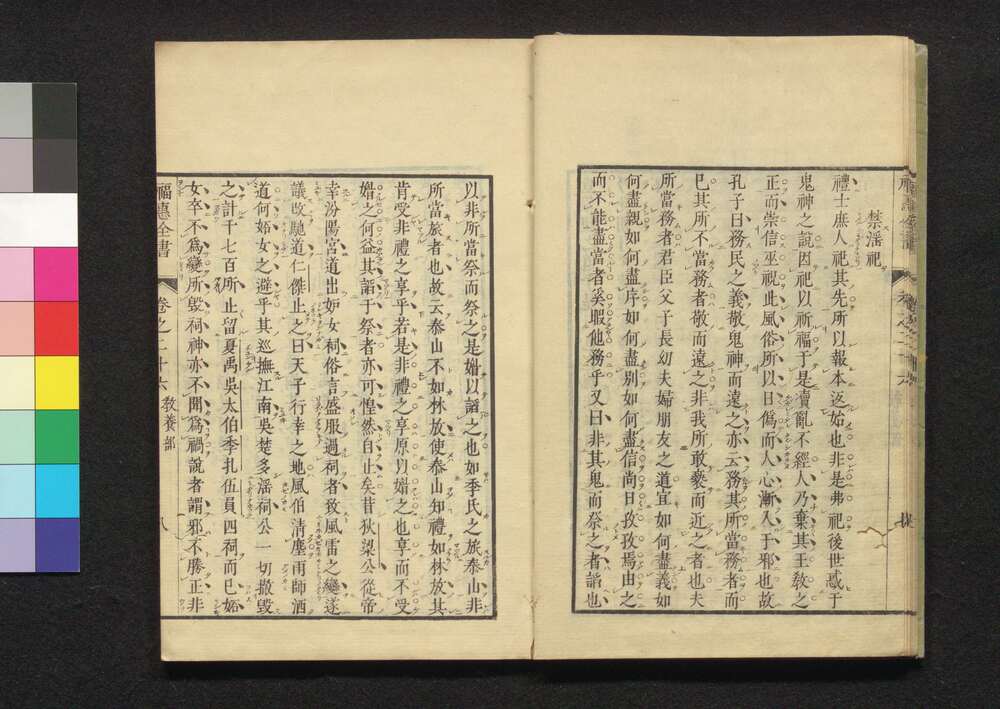 禁滛祀
禮士庶人祀其先所以報本返始也非是弗祀後世惑于
鬼神之說因祀以祈福于是瀆亂不經人乃棄其王敎之
正而崇信巫祝此風俗所以日偽而人心漸入于邪也故
孔子曰務民之義敬鬼神而遠之亦云務其所當務者而
已其所不當務者敬而遠之非我所敢褻而近之者也夫
所當務者君臣父子長幼夫婦朋友之道宜如何盡義如
何盡親如何盡序如何盡别如何盡信尚日孜孜焉由之
而不能盡當者奚暇他務乎又曰非其鬼而祭之者謟也
以非所當祭而祭之是媚以謟之也如季氏之旅泰山非
所當旅者也故云泰山不如林放使泰山知禮如林放其
肯受非禮之享乎若是非禮之享原以媚之也享而不受
媚之何益其謟于祭者亦可惶然自止矣昔狄梁公從帝
幸汾陽宮道出妒女祠俗言盛服過祠者致風雷之變遂
議改馳道仁傑止之曰天子行幸之地風伯清塵雨師洒
道何妬女之避乎其巡撫江南吳楚多滛祠公一切撤毀
之計千七百所止留夏禹吳太伯季扎伍員四祠而已妬
女卒不爲變所毁祠神亦不聞爲禍說者謂邪不勝正非
福惠全書
卷之二十六
敎養部
八